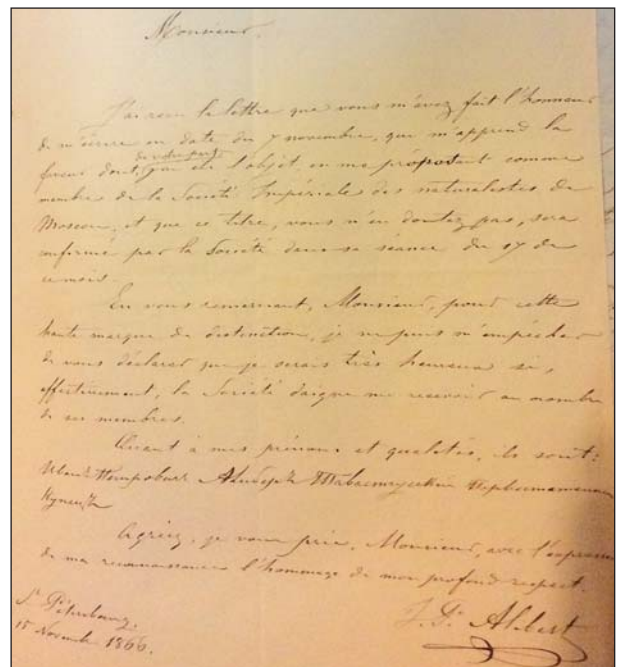 Monsieur.
J'ai reçu la lettre que vous m'avez fait l'honneur
de m'écrire en date du 7 novembre, qui m'apprend la
de votre part
faveur dont j'ai été l'objet, en me proposant comme
membre de la Société Impériale des naturalistes de
Moscou, et que ce titre, vous n'en doutez pas, sera
confirmé par la Société dans sa séance du 17 de
ce mois.
En vous remerciant, Monsieur, pour cette
haute marque de distinction, je ne puis m'empêcher
de vous déclarer que je serais très heureux si,
effectivement, la Société daigne me recevoir au nombre
de ses membres.
Quant à mes prénoms et qualités, ils sont:
Иванъ Петровичъ Алиберъ Тавастгускій Первостатейный
Купецъ
Agréez, je vous prie, Monsieur, avec l'expression
de ma reconnaissance l'hommage de mon profond respect.
J. P. Alibert
St Pétersbourg.
15 Novembre 1866.